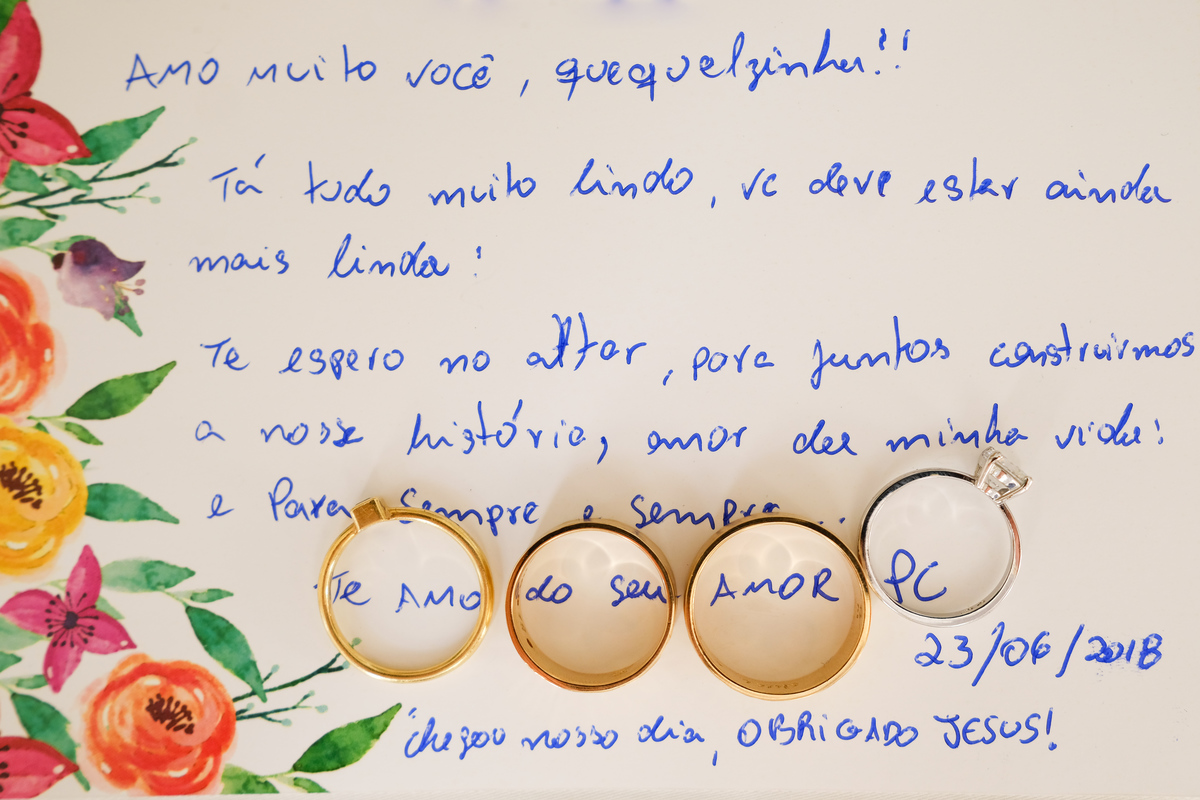 AMO muito você, quequelzinha!!
Tá tudo muito lindo, vc deve estar ainda
mais linda!
Te espero no altar, para juntos construirmos
a nossa história, amor da minha vida!
e Para sempre e sempre...
Te AMO do seu AMOR PC
23/06/2018
chegou nosso dia, OBRIGADO JESUS!